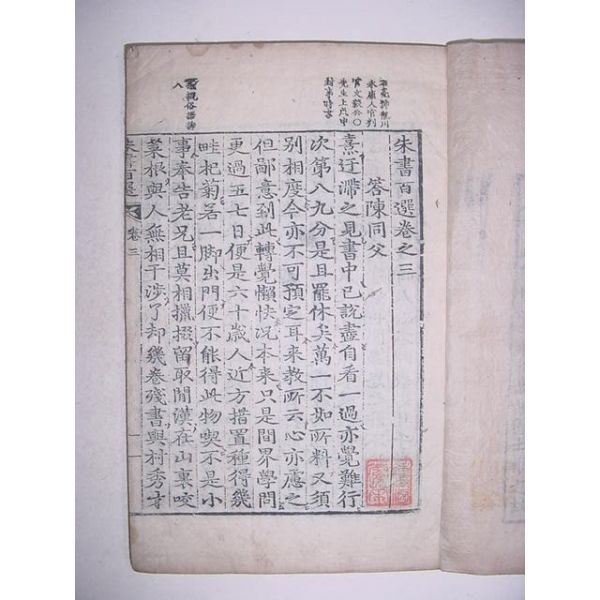 朱書百選卷之三
答陳同父
熹迂滯之見書中已說盡自看一過亦覺難行
次第八九分是且罷休矣萬一不如所料又須
別相度今亦不可預定耳来教所云心亦慮之
但鄙意到此轉覺懶怏况本来只是間界學問
更過五七日便是六十歲人近方措置種得幾
畦杞菊若一脚出門便不能得此物喫不是小
事奉告老兄且莫相攛掇留取閒漢在山裏咬
菜根與人無相干涉了却幾卷殘書與村秀才
朱書百選
卷三
一
永康人官判
先生上戊申
封事時書